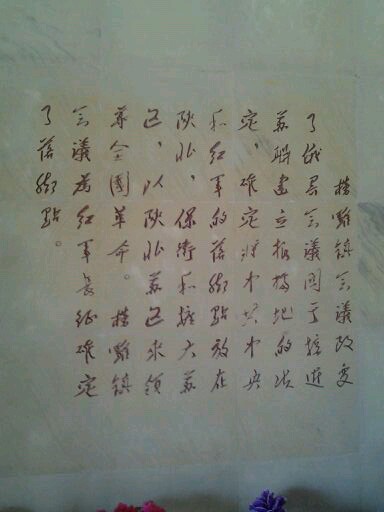 榜羅镇会議改变
了俄界会議関于接近
苏联建立根据地的决
定，确定将中共中央
和红军的落脚點放在
陕北，保衛和擴大苏
区，以陕北苏区来领
导全國革命。榜羅镇
会議為红军長征确定
了落脚點。